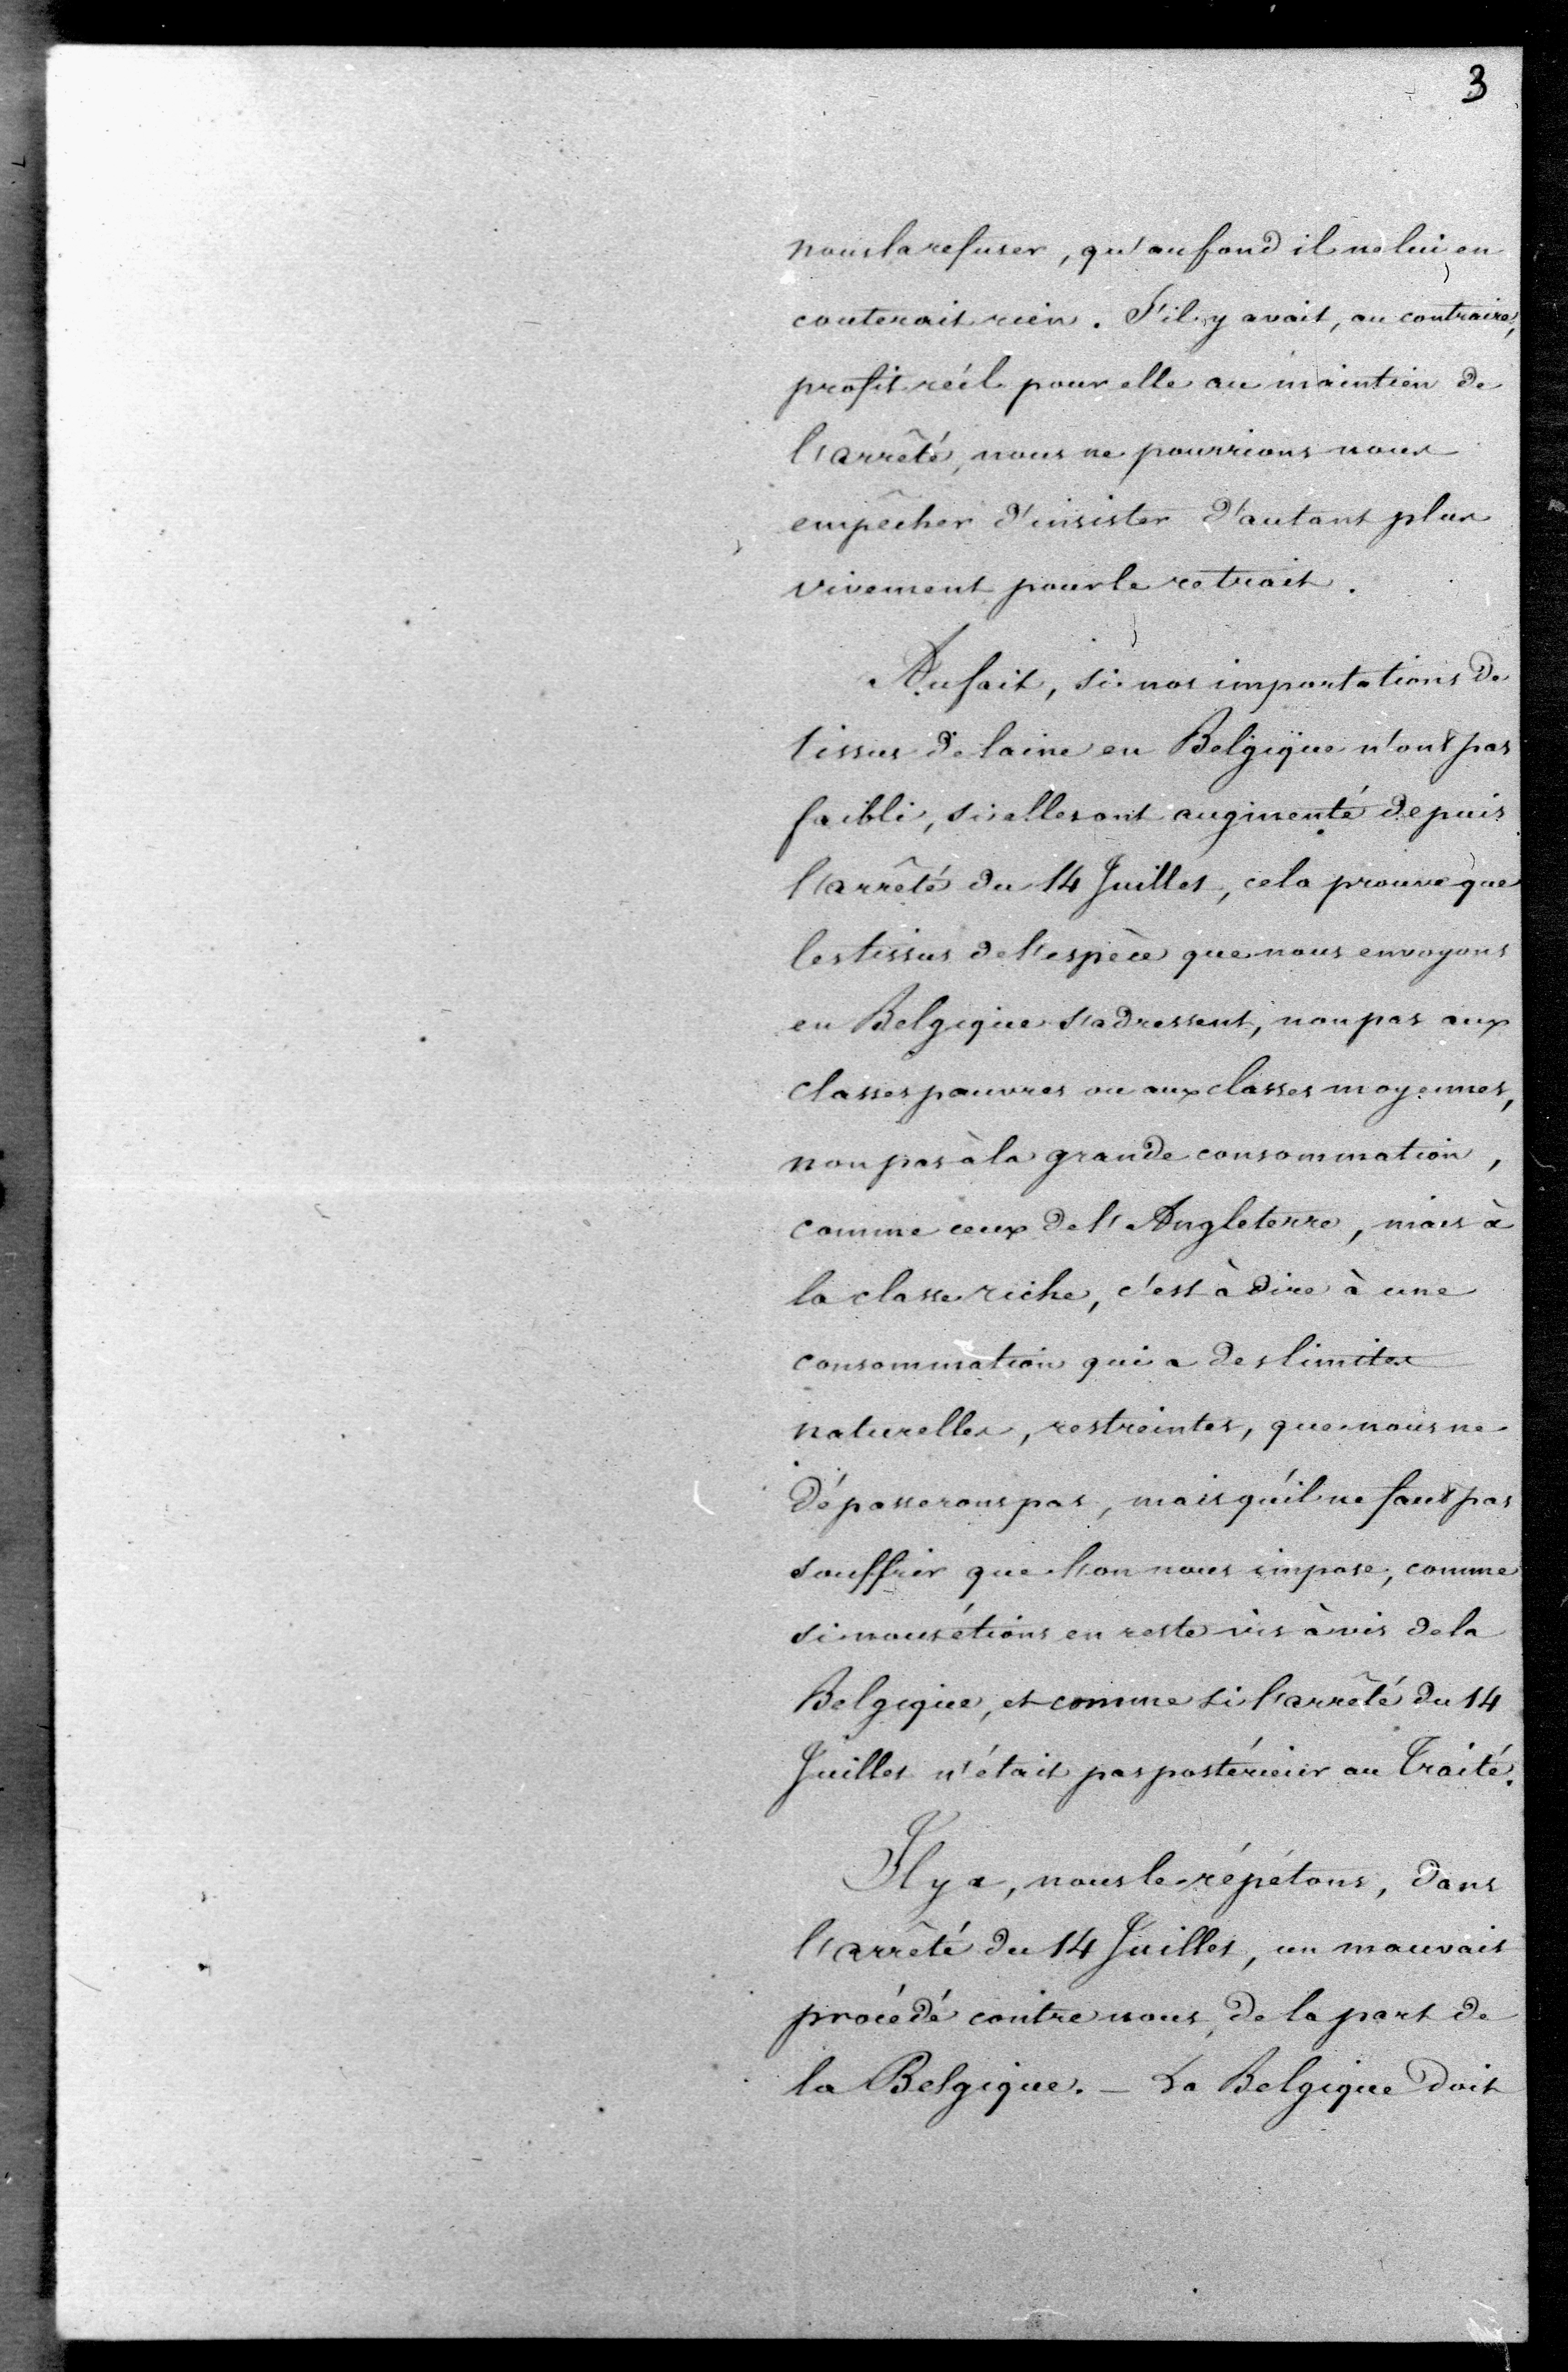 3
nous la refuser, qu'au fond il ne lui en
couterait rien. S'il y avait, au contraire,
profit réel pour elle au maintien de
l'arrêté, nous ne pourrions nous
empêcher d'insister d'autant plus
vivement pour le retrait.
Au fait, si nos importations de
tissus de laine en Belgique n'ont pas
faibli, si elles ont augmenté depuis
l'arrêté du 14 Juillet, cela prouve que
les tissus de l'espèce que nous envoyons
en Belgique s'adressent, non pas aux
classes pauvres ou aux classes moyennes,
non pas à la grande consommation,
comme ceux de l'Angleterre, mais à
la classe riche, c'est à dire à une
consommation qui a des limites
naturelles, restreintes, que nous ne
dépasserons pas, mais qu'il ne faut pas
souffrir que l'on nous impose, comme
si nous étions en reste vis à vis de la
Belgique, et comme si l'arrêté du 14
Juillet n'était pas postérieur au Traité.
Il y a, nous le répétons, dans
l'arrêté du 14 Juillet, un mauvais
procédé contre nous, de la part de
la Belgique. – La Belgique doit